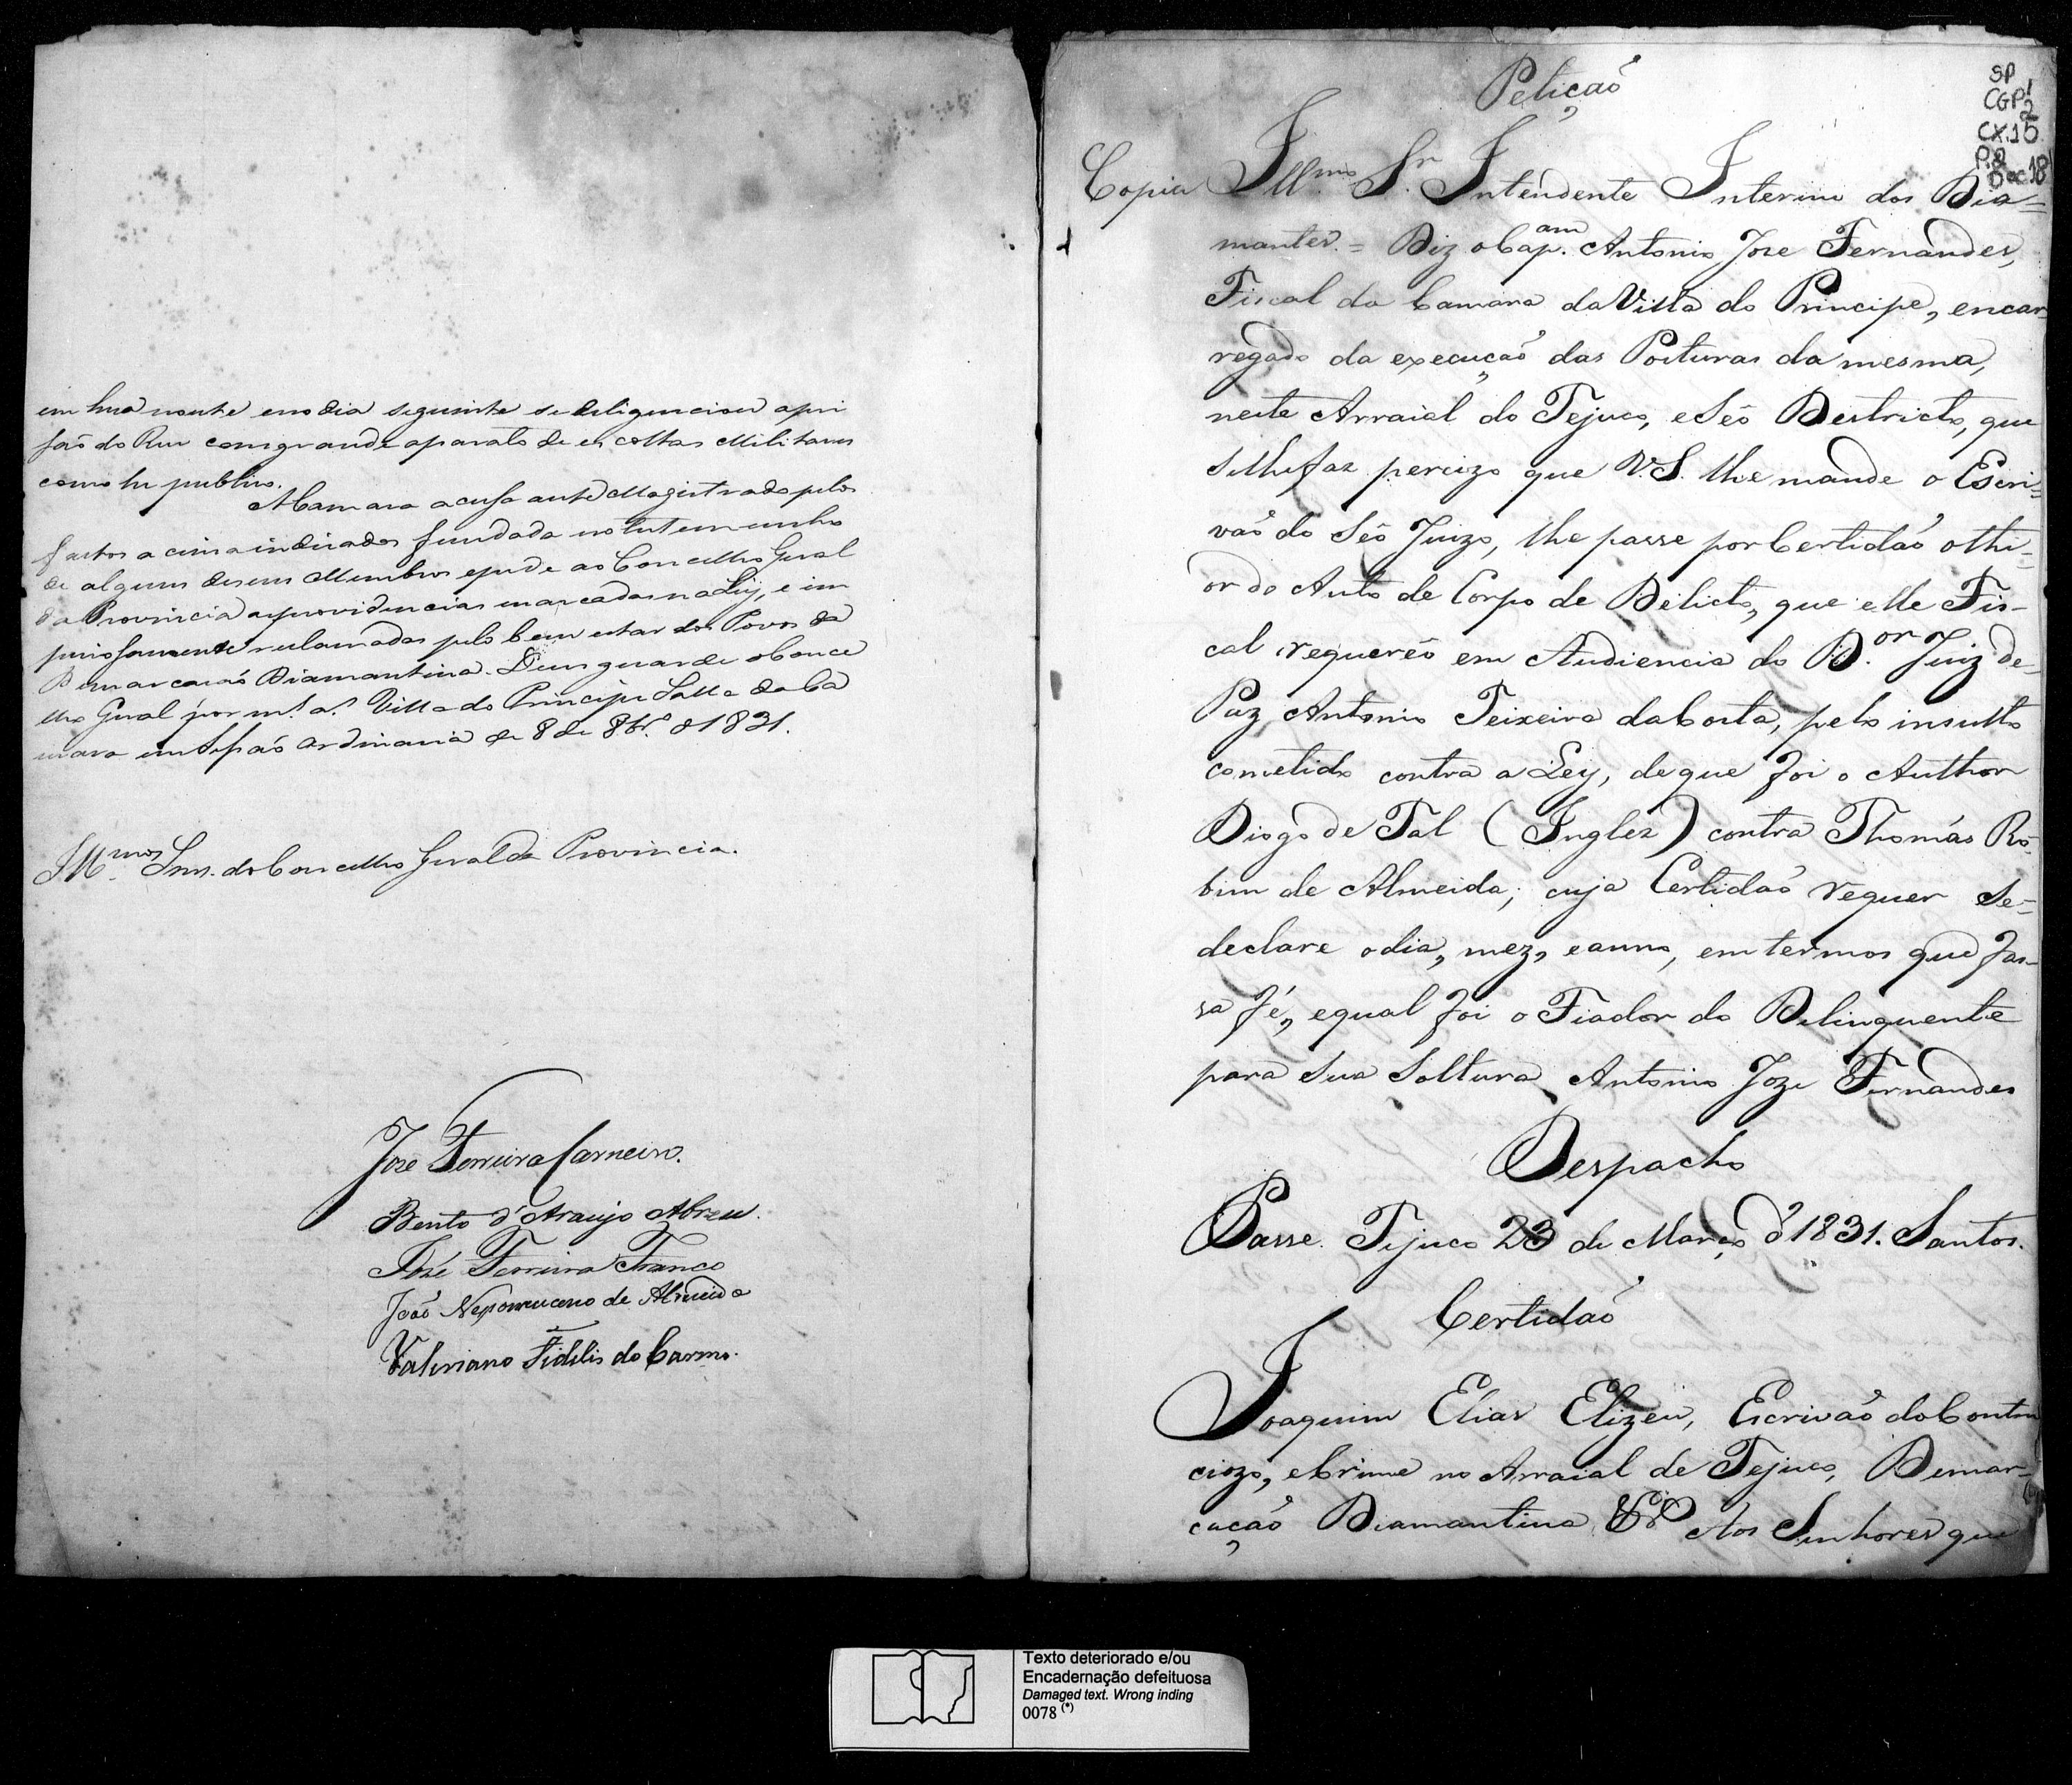 em hua noute e no dia seguinte se deligenciou a pri
saõ do Reu com grande aparato de escoltas Militares
como he publico.
A Camara acusa aute Magistrado pelos
factos acima indicados fundada no testemunho
de alguns deseus Membros epede ao Concelho Geral
da Provincia asprovidencias marcadas na Ley, e im
periosamente reclamadas pelo bem estar dos Povos da
Demarcacaõ Diamantina. Deus guarde o Conce
lho Geral por m.s a.s Villa do Principe Salla da Ca
mara em Sessaõ Ordinaria de 8 de 8br.º d 1831.
Ill.mos Snrs. do Concelho Geral da Provincia.
Joze Ferreira Carneiro.
Bento d'Araujo Abreu.
José Ferreira Franco
Joaõ Nepomuceno de Almeida
Valeriano Fidelis do Carmo.
SP
CGP1
2
CX.15
P.2
Doc 18
Petiçaõ
Copia Ill.mo S.r Intendente Interino dos Dia=
mantes. = Diz o Cap.am Antonio Joze Fernandes,
Fiscal da Camara da Villa do Principe, encar
regado da execuçaõ das Posturas da mesma,
neste Arraial do Tejuco, e Seo Destricto, que
selhefaz percizo que V.S. lhe mande o Escri=
vaõ do Seo Juizo, lhe passe por Certidaõ othi=
or do Auto de Corpo de Delicto, que elle Fis-
cal requereo em Audiencia do D.or Juiz de
Paz Antonio Teixeira da Costa, pelo insulto
cometido contra a Ley, de que foi o Author
Diogo de Tal (Inglez) contra Thomás Ro-
bim de Almeida; cuja Certidaõ requer se=
declare o dia, mez, e anno, em termos que fas-
sa fé, e qual foi o Fiador do Delinquente
para sua Soltura Antonio Joze Fernandes
Despacho
Passe. Tejuco 23 de Março d 1831. Santos.
Certidaõ
Joaquim Elias Elizeu, Escrivaõ do Conten
ciozo, e Crime no Arraial de Tejuco, Demar-
cacaõ Diamantina &ª Aos Senhores que
Texto deteriorado e/ou
Encadernação defeituosa
Damaged text. Wrong inding
0078 (*)